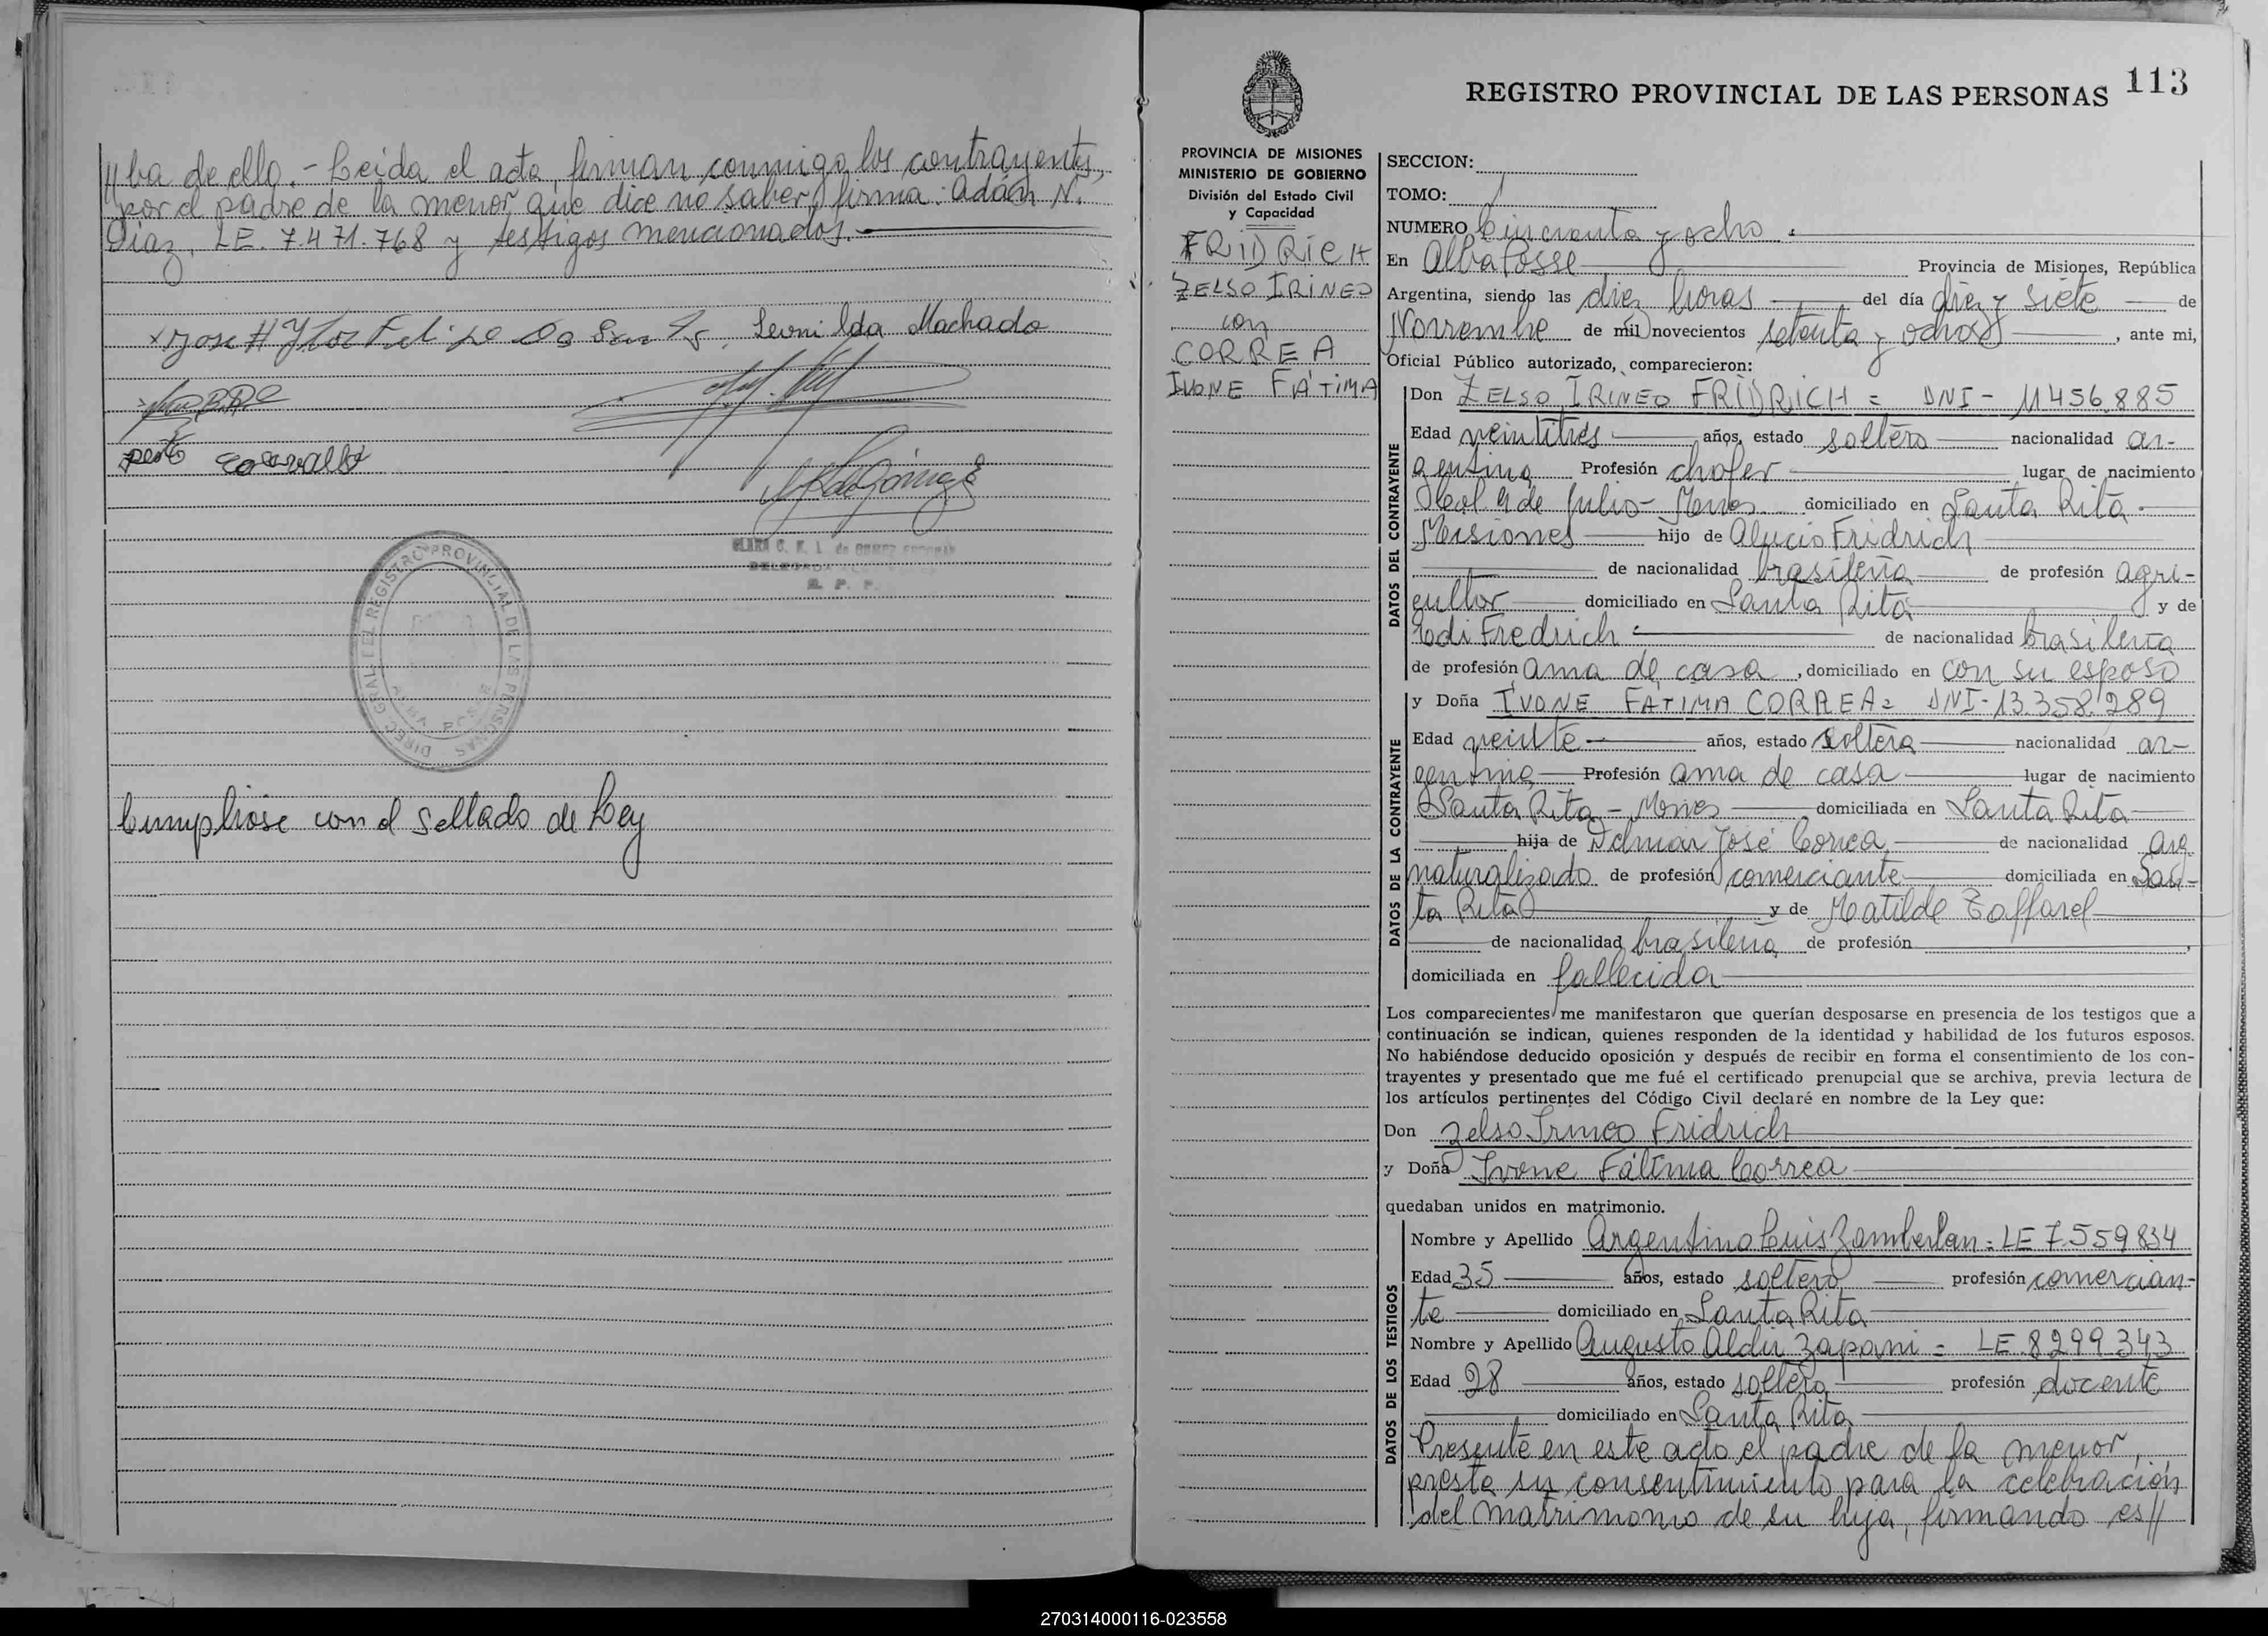 //ba de ello.- Leída el acta, firman conmigo los contrayentes,
por el padre de la menor que dice no saber, firma: Adán N.
Díaz, LE. 7.471.768 y testigos mencionados.-
Leonilda Machado
DIREC. GRAL. DEL REGISTRO PROVINCIAL DE LAS PERSONAS
ALBA POSSE
Cumplióse con el sellado de Ley
REGISTRO PROVINCIAL DE LAS PERSONAS 113
PROVINCIA DE MISIONES
MINISTERIO DE GOBIERNO
División del Estado Civil
y Capacidad
FRIDRICH
ZELSO IRINEO
con
CORREA
IVONE FÁTIMA
SECCION:
TOMO: 1
NUMERO Cincuenta y ocho.
En Alba Posse Provincia de Misiones, República
Argentina, siendo las diez horas del día diez y siete de
Noviembre de mil novecientos setenta y ocho, ante mi,
Oficial Público autorizado, comparecieron:
DATOS DEL CONTRAYENTE
Don ZELSO IRINEO FRIDRICH = DNI - 11456.885
Edad veintitrés años, estado soltero nacionalidad ar-
gentina Profesión chofer lugar de nacimiento
9 de Julio - domiciliado en Santa Rita -
Misiones hijo de Alucio Fridrich
de nacionalidad brasileña de profesión agri-
cultor domiciliado en Santa Rita y de
Fredrich de nacionalidad brasileña
de profesión ama de casa, domiciliado en con su esposo
DATOS DE LA CONTRAYENTE
y Doña IVONE FÁTIMA CORREA = DNI - 13.358.289
Edad veinte años, estado soltera nacionalidad ar-
gentina Profesión ama de casa lugar de nacimiento
Santa Rita - Mnes domiciliada en Santa Rita
hija de Delmar José Correa de nacionalidad arg.
naturalizado de profesión comerciante domiciliada en San-
ta Rita y de Matilde Toffarel
de nacionalidad brasileña de profesión
domiciliada en fallecida
Los comparecientes me manifestaron que querían desposarse en presencia de los testigos que a
continuación se indican, quienes responden de la identidad y habilidad de los futuros esposos.
No habiéndose deducido oposición y después de recibir en forma el consentimiento de los con-
trayentes y presentado que me fué el certificado prenupcial que se archiva, previa lectura de
los artículos pertinentes del Código Civil declaré en nombre de la Ley que:
Don Zelso Irineo Fridrich
y Doña Ivone Fátima Correa
quedaban unidos en matrimonio.
DATOS DE LOS TESTIGOS
Nombre y Apellido Argentino Luis Zamberlan = LE 7.559834
Edad 35 años, estado soltero profesión comercian-
te domiciliado en Santa Rita
Nombre y Apellido Augusto Aldir Zapani = LE.8299343
Edad 28 años, estado soltero profesión docente
domiciliado en Santa Rita
Presente en este acto el padre de la menor,
presta su consentimiento para la celebración
del matrimonio de su hija, firmando es//
270314000116-023558